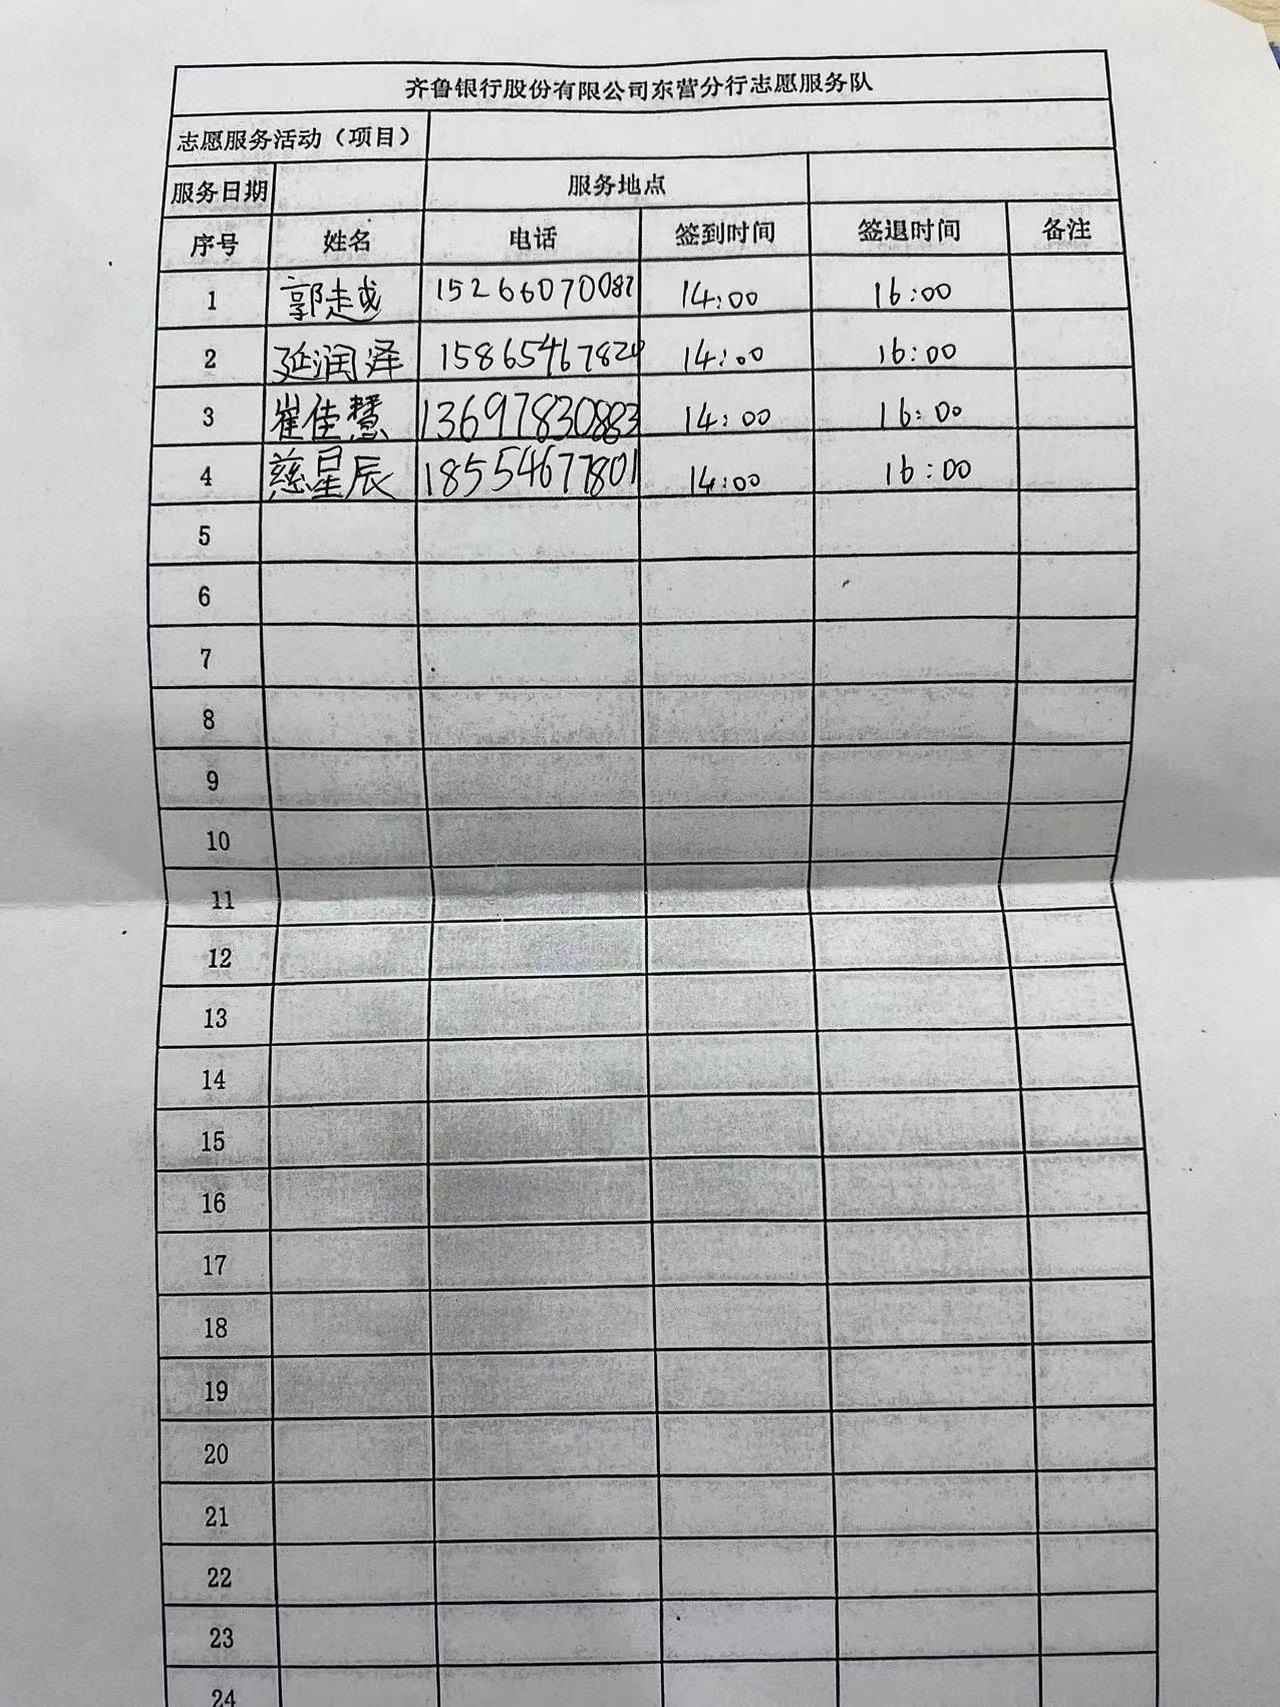 齐鲁银行股份有限公司东营分行志愿服务队
志愿服务活动（项目）
服务日期 服务地点
序号 姓名 电话 签到时间 签退时间 备注
1 郭越 15266070087 14:00 16:00
2 延润泽 15865467824 14:00 16:00
3 崔佳慧 13697830883 14:00 16:00
4 慈星辰 18554677801 14:00 16:00
5
6
7
8
9
10
11
12
13
14
15
16
17
18
19
20
21
22
23
24